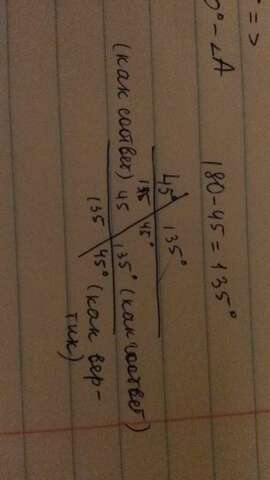 =>
0° - ∠A 180-45=135°
45° 135°
135 45°
(как соответ) 45 135° (как соответ)
135 45° (как вер-
тик)